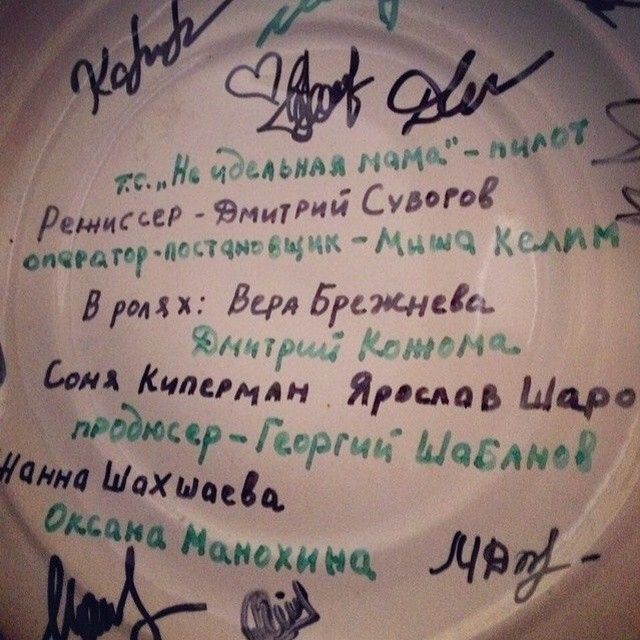 т.с. „Не идельная мама" - пилот
Режиссер - Дмитрий Суворов
оператор-постановщик - Миша Келим
В ролях: Вера Брежнева
Дмитрий Кожома
Соня Киперман Ярослав Шаро
продюсер - Георгий Шабанов
Жанна Шахшаева
Оксана Манохина